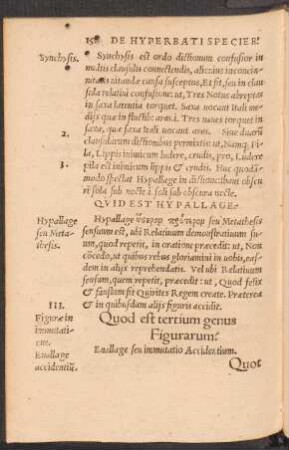 158 DE HYPERBATI SPECIEB.
Synchysis.
Synchysis est ordo dictionum confusior in
multis clausulis connectendis, alicuius inconcin-
nitatis vitandæ causa susceptus, Et fit, seu in clau
sula relatiui confusione: ut, Tres Notus abreptas
in saxa latentia torquet. Saxa uocant Itali me-
dijs quæ in fluctib' aras. i. Tres naues torquet in
saxa, quæ saxa Itali uocant aras. Siue duarū
2.
clausularum dictionibus permixtis: ut, Namq;
Fila, Lippis inimicum ludere, crudis, pro, Ludere
3.
pila est inimicum lippis & crudis. Huc quodā-
modo spectat Hypallage in dictionibus: Ibant obscu
ri sola sub nocte i. soli sub obscura nocte.
QVID EST HYPALLAGE.
Hypallage
seu Meta-
thesis.
Hypallage ὕστερον πρότερον seu Metathesis
sensuum est, ubi Relatiuum demonstratiuum su-
um, quod repetit, in oratione præcedit: ut, Non
cōcedo, ut quibus rebus gloriamini in uobis, eas-
dem in alijs reprehendatis. Vel ubi Relatiuum
sensum, quem repetit, præcedit: ut, Quod felix
& faustum sit Quirites Regem create. Præterea
& in quibusdam alijs figuris accidit.
III.
Figuræ in
immutati-
one.
Enallage
accidentiū.
Quod est tertium genus
Figurarum?
Enallage seu immutatio Accidentium.
Quot